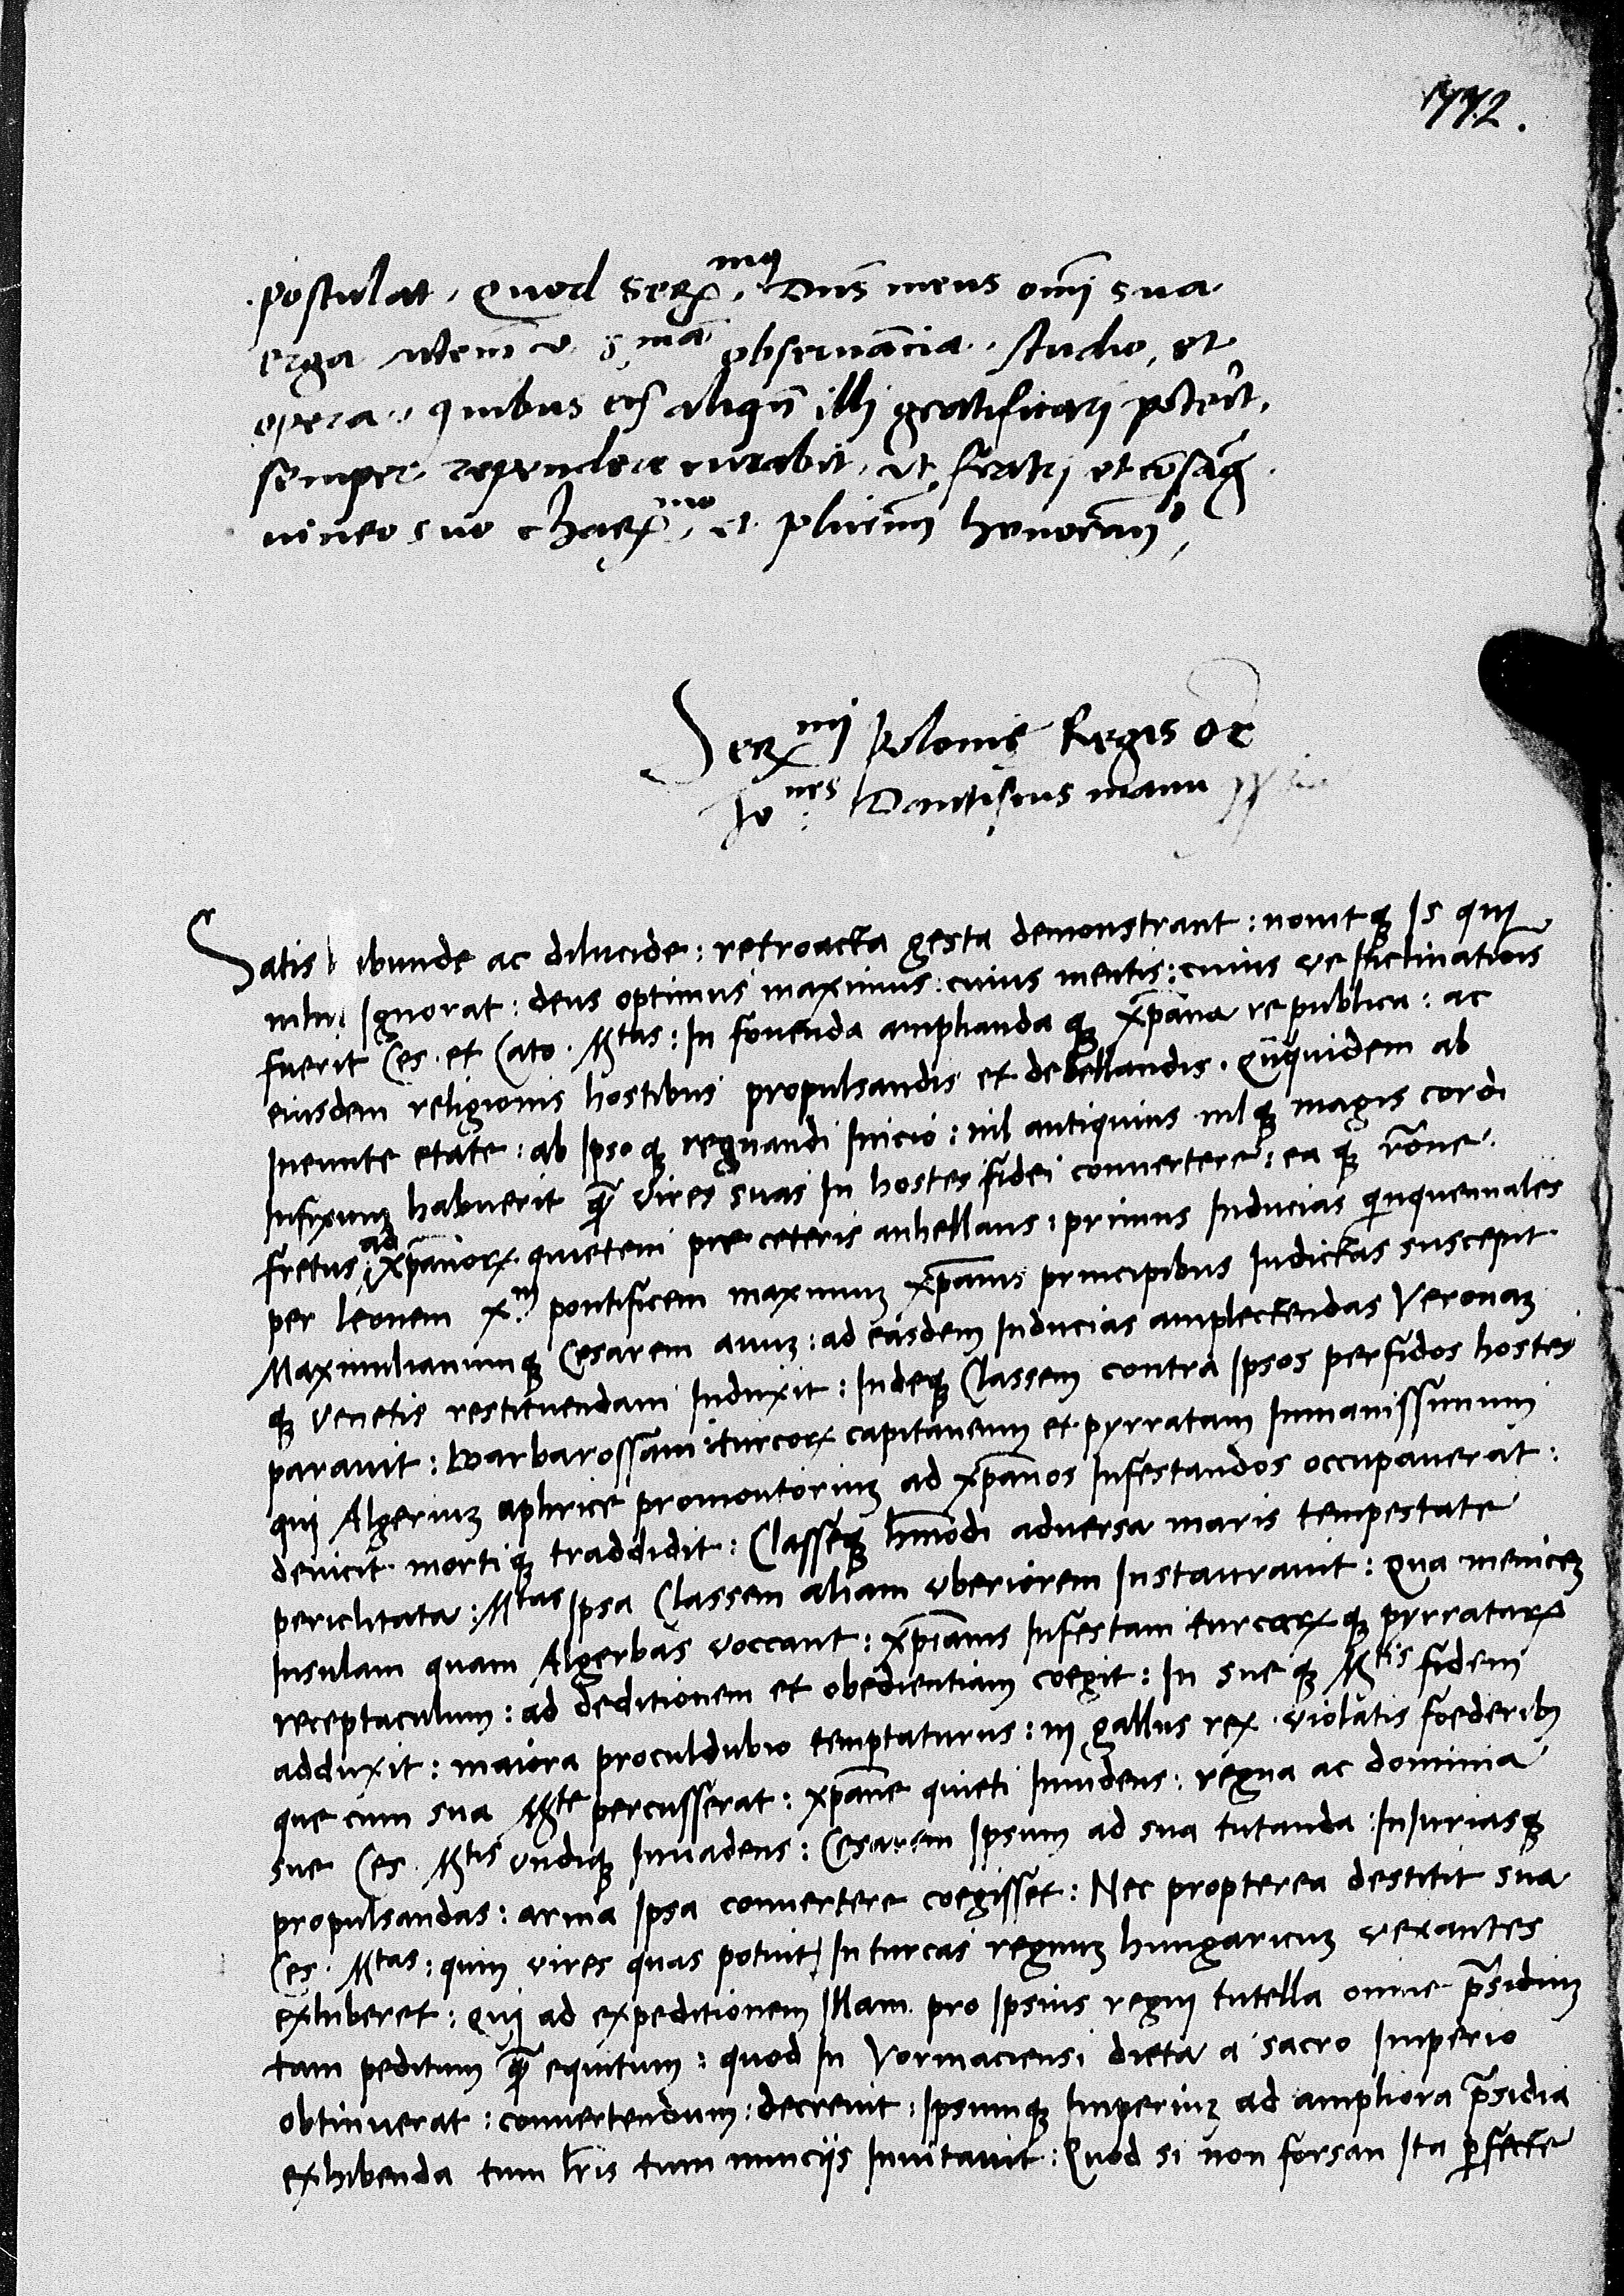 172.
postulat, Quod Serx.mus Dns meus omi sua
erga v. s. mam observãcia, studio, et
opera, quibus ei aliqñ illi gratificarj poterit,
semper rependere curabit, ut fratrj et cõsãg
uineo suo charx.mo et plurimũ honorãdo,
Serx.mj Polonie Regis oc
Io.nes Dantiscus manu
Satis abunde ac dilucide: retroacta gesta demonstrant: nouitq₃ Is quj
nihil Ignorat: deus optimus maximus: cuius mentis: cuius ve Inclinationis
fuerit Ces. et Cato. Mtas: In fouenda amplianda q₃ xp̃ana republica: ac
eiusdem religionis hostibus propulsandis et debellandis. Qñquidem ab
Ineunte etate: ab Ipso q₃ regnandi Inicio: nil antiquius nilq₃ magis cordi
Infixum habuerit q̃ vires suas In hostes fidei conuertere: ea q₃ rõne
fretus: ad xp̃anorx quietem pre ceteris anhellans: primus Inducias quinquennales
per leonem x.m pontificem maximum xp̃anis principibus Indictas suscepit
Maximilianumq₃ Cesarem auum: ad easdem Inducias amplectendas Veronam
q₃ venetis restituendam Induxit: Indeq₃ Classem contra Ipsos perfidos hostes
parauit: barbarossam turcorx capitaneum et pyrratam Inmanissimum
quj Algerium aphrice promontorium ad xp̃anos Infestandos occupauerat:
deuicit mortiq₃ traddidit: Classeq₃ hmõdi aduersa maris tempestate
periclitata: Mtas Ipsa Classem aliam vberiorem Instaurauit: Qua menicem
Insulam quam Algerbas voccant: xp̃ianis Infestam turcorx q₃ pyrratarx
receptaculum: ad deditionem et obedientiam coegit: In sue q₃ Mtis fidem
adduxit: maiora proculdubio temptaturus: nj gallus rex violatis foederibus
que cum sua Mte percusserat: xp̃ane quieti Inuidens: regna ac dominia
sue Ces. Mtis vndiq₃ Inuadens: Cesarem Ipsum ad sua tutanda: Iniuriasq₃
propulsandas: arma Ipsa conuertere coegisset: Nec propterea destitit sua
Ces. Mtas: quin vires quas potuit In turcas regnum hungaricum vexantes
exhiberet: Quj ad expeditionem Illam pro Ipsius regnj tutella omne p̃sidium
tam peditum q̃ equitum: quod In Vormaciensi dieta a sacro Imperio
obtinuerat: conuertendum: decreuit: Ipsumq₃ Imperium ad ampliora p̃sidia
exhibenda tum lr̃is tum nuncijs Inuitauit: Quod si non forsan Ita perfecte